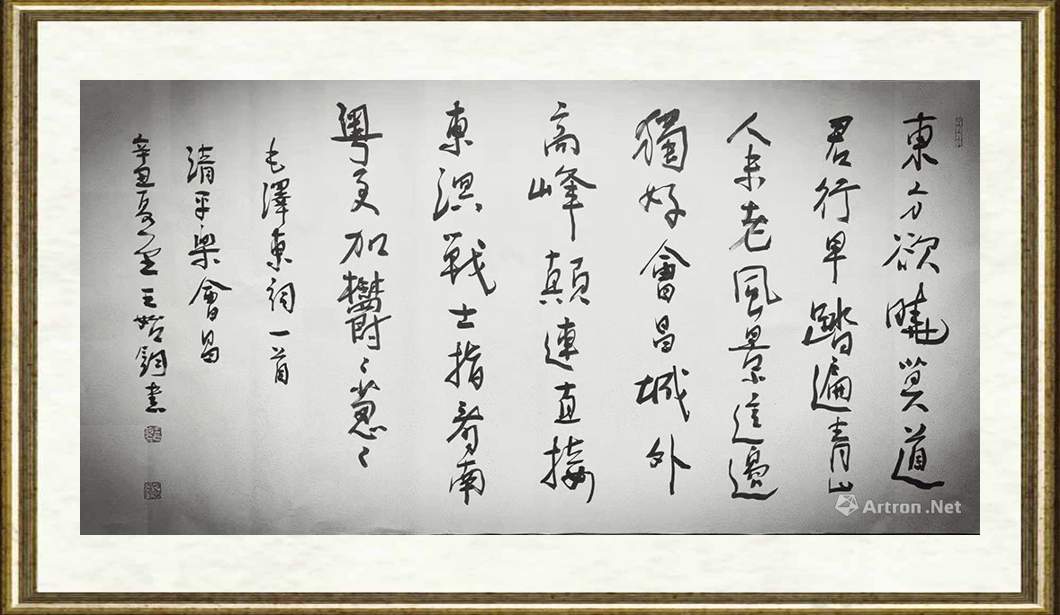 東方欲曉莫道
君行早踏遍青山
人未老風景這邊
獨好會昌城外
高峰顛連直接
東溟戰士指看南
粵更加鬱〻蔥〻
毛澤東詞一首
清平樂會昌
辛丑夏
王始鈞書
Artron.Net